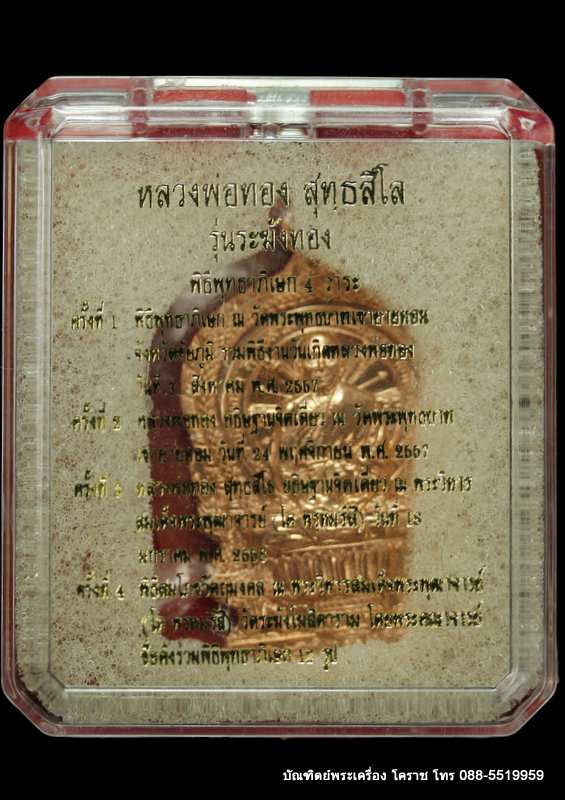 หลวงพ่อทอง สุทธสีโล
รุ่นระฆังทอง
พิธีพุทธาภิเษก 4 วาระ
ครั้งที่ 1 พิธีพุทธาภิเษก ณ วัดพระพุทธบาทเขายายหอม
จังหวัดชัยภูมิ ร่วมพิธีงานวันเกิดหลวงพ่อทอง
วันที่ สิงหาคม พ.ศ. 2557
ครั้งที่ 2 หลวงพ่อทอง อธิษฐานจิตเดี่ยว ณ วัดพระพุทธบาท
เขายายหอม วันที่ 24 พฤศจิกายน พ.ศ. 2557
ครั้งที่ 3 หลวงพ่อทอง สุทธสีโล อธิษฐานจิตเดี่ยว ณ พระวิหาร
สมเด็จพระพุฒาจารย์ (โต พรหมรังสี) วันที่ 18
มกราคม พ.ศ. 2558
ครั้งที่ 4 พิธีสมโภชวัตถุมงคล ณ พระวิหารสมเด็จพระพุฒาจารย์
(โต พรหมรังสี) วัดระฆังโฆสิตาราม โดยพระคณาจารย์
ชื่อดังร่วมพิธีพุทธาภิเษก 12 รูป
บัณฑิตย์พระเครื่อง โคราช โทร 088-5519959